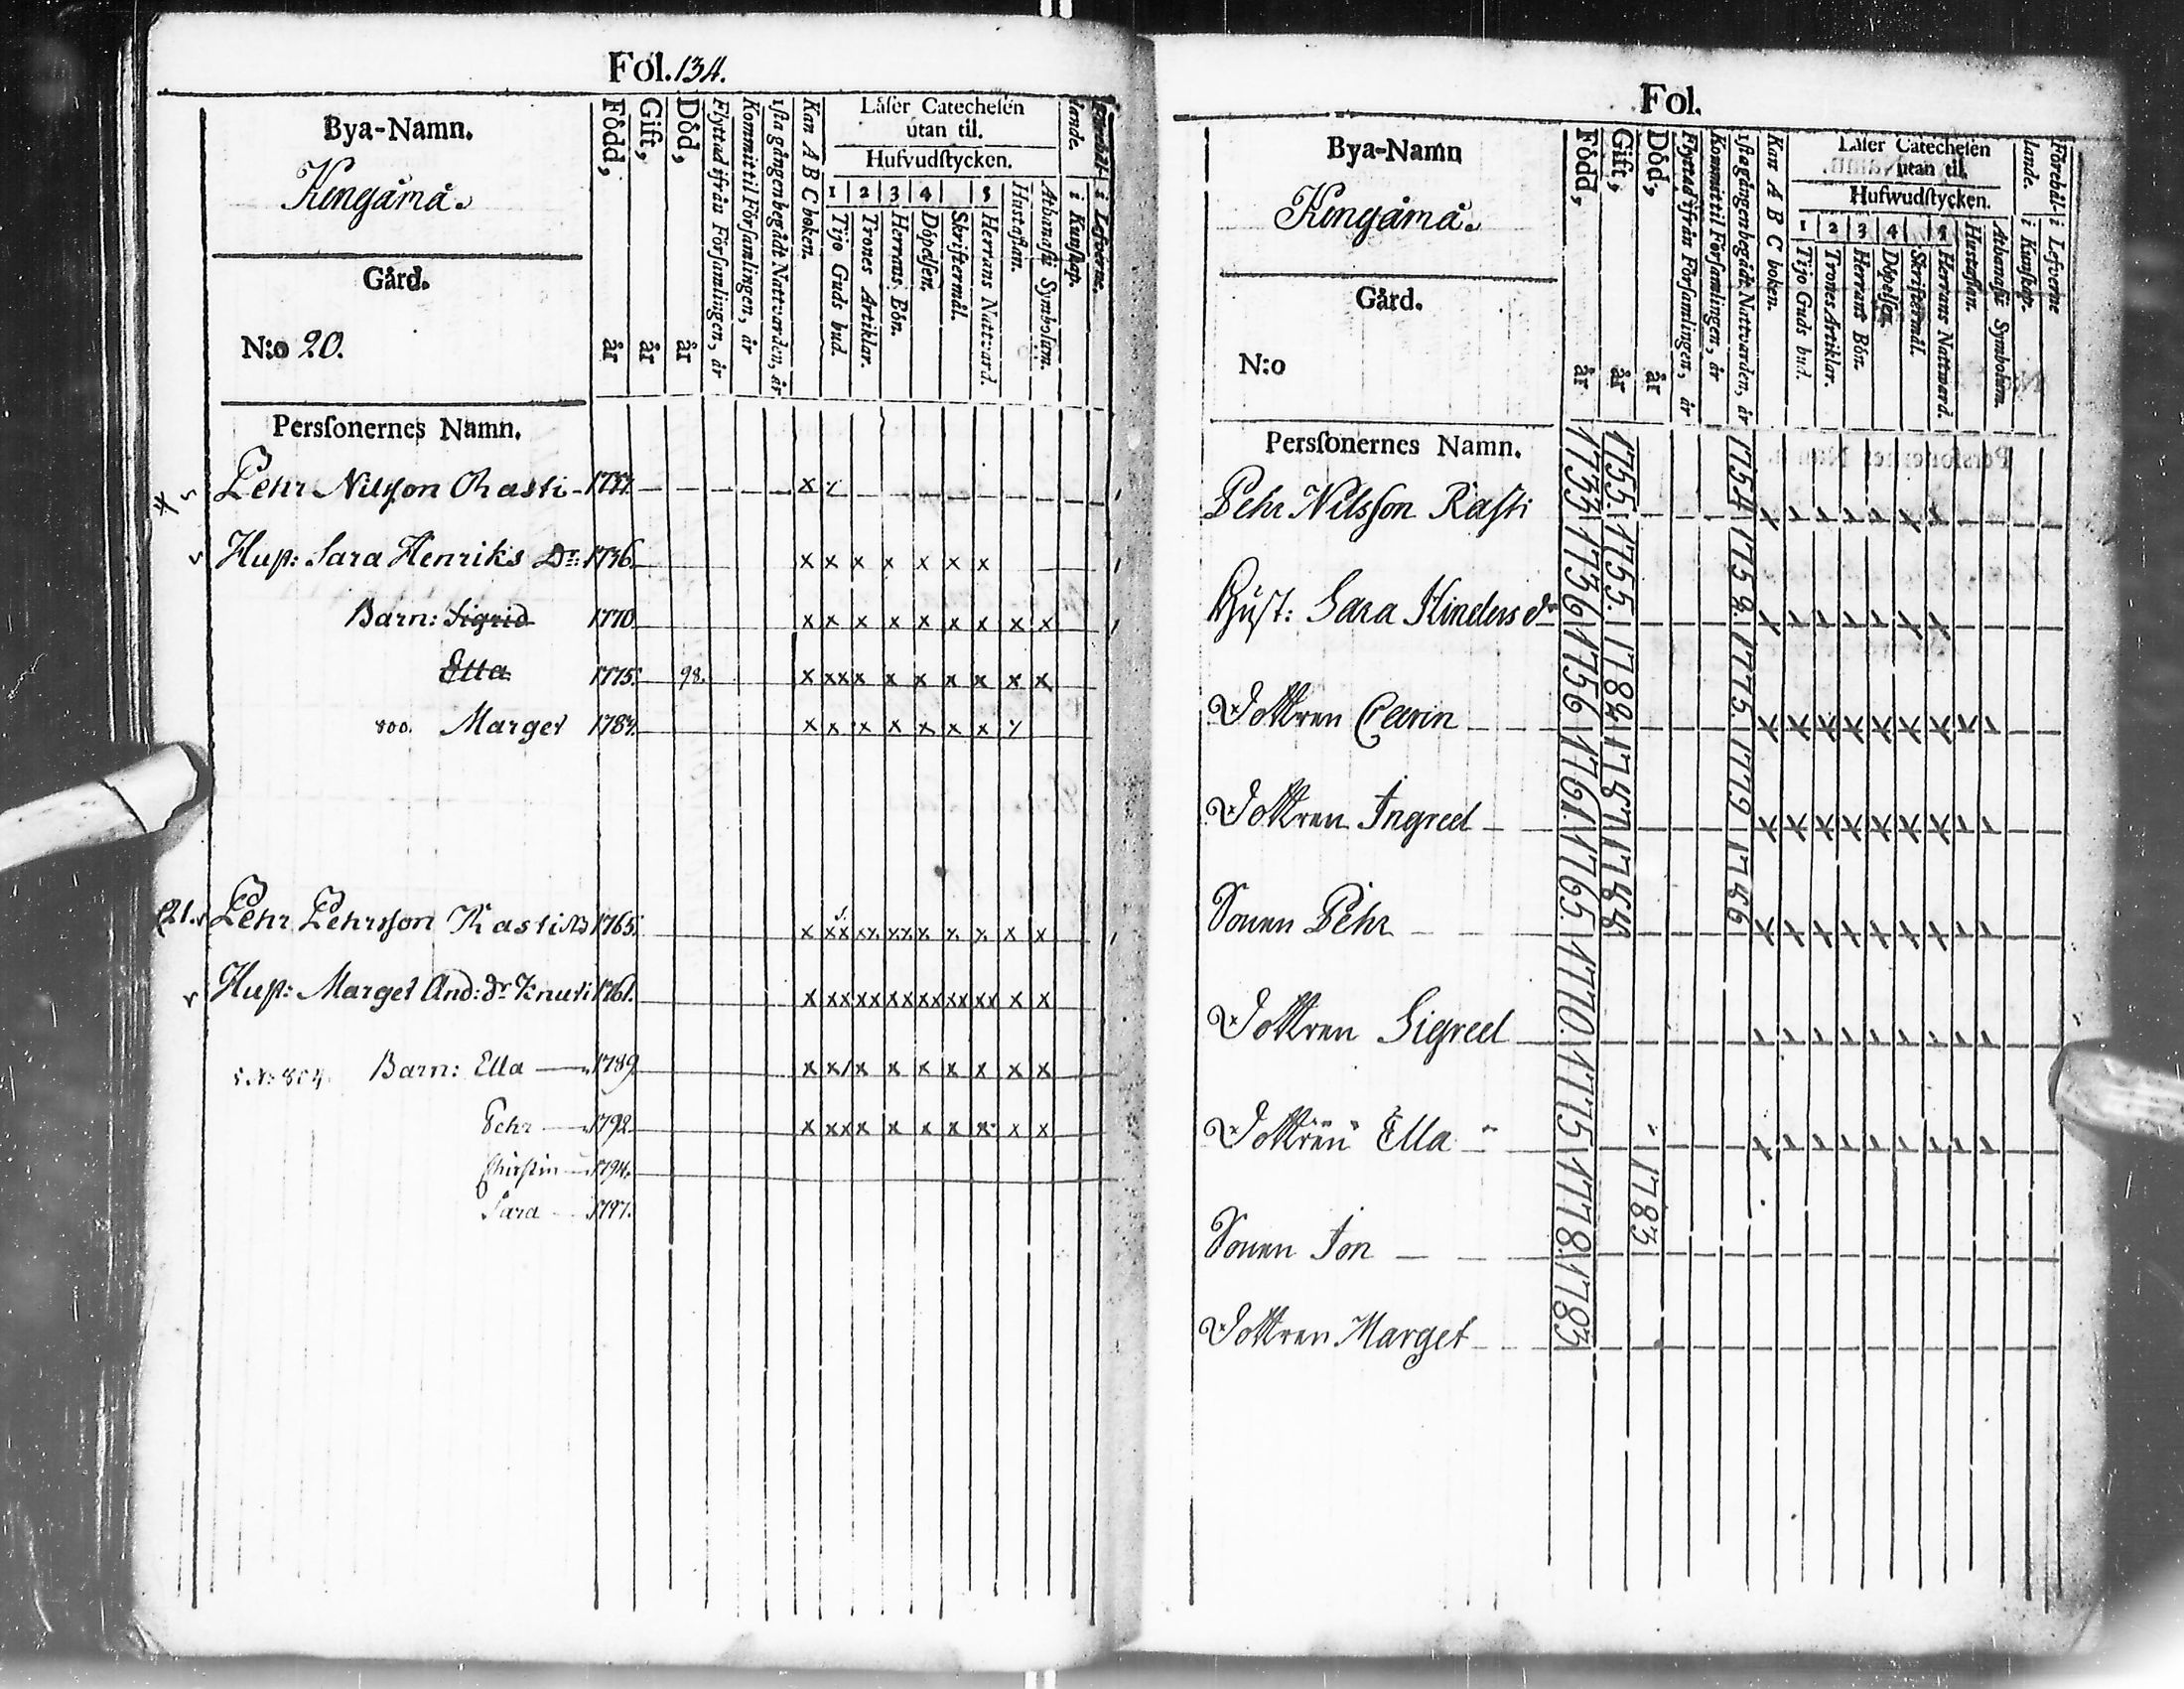 Fol. 134.
Bya-Namn.
Kengämä.
Gård.
N:o 20.
Persſonernes Namn.
Född, år
Gift, år
Död, år
Flyttad ifrån Förſamlingen, år
Kommit til Förſamlingen, år
1ſta gången begådt Nattvarden, år
Kan A B C boken.
Läſer Catecheſen
utan til.
Hufvudſtycken.
1 2 3 4 5
Tijo Guds bud.
Trones Artiklar.
Herrans Bön.
Döpelſen.
Skriftermål.
Herrans Nattvard.
Huſtaflan.
Athanaſii Symbolum.
lande.
i Kunſkap.
i Lefverne.
Pehr Nilsſon Rasti - 1733.
Huſt: Sara Henriks Dr: 1736. x x x x x x x
Barn: Sigrid 1770. x x x x x x x x x
Ella 1775. 98. x xx x x x x x x x
800. Marget 1783.
21. Pehr Pehrsſon Rasti 1765.
Huſt: Marget And: dr Knuti 1761. x xx xx xx xx xx xx x x
Barn: Ella 1789.
Pehr 1792.
Chirſtin 1794.
Sara 1797.
Fol.
Bya-Namn
Kengämä.
Gård.
N:o
Persſonernes Namn.
Född, år
Gift, år
Död, år
Flyttad ifrån Förſamlingen, år
Kommit til Förſamlingen, år
1ſta gången begådt Nattvarden, år
Kan A B C boken.
Läſer Catecheſen
utan til.
Hufwudſtycken.
1 2 3 4 5
Tijo Guds bud.
Trones Artiklar.
Herrans Bön.
Döpelſen.
Skriftermål.
Herrans Nattward.
Huſtaflan.
Athanaſii Symbolum.
Förehåll-
lande.
i Kunſkap.
i Lefverne
Pehr Nilsſon Raſti 1733 1755. 1754
Huſt: Sara Hinders dr 1736 1755. 1758.
Dottren Carin 1756 1782 1775.
Dottren Ingred 1761. 1787 1779
Sonen Pehr 1765. 1788 1786
Dottren Sigred 1770.
Dottren Ella 1775
Sonen Jon 1778. 1783
Dottren Marget 1783